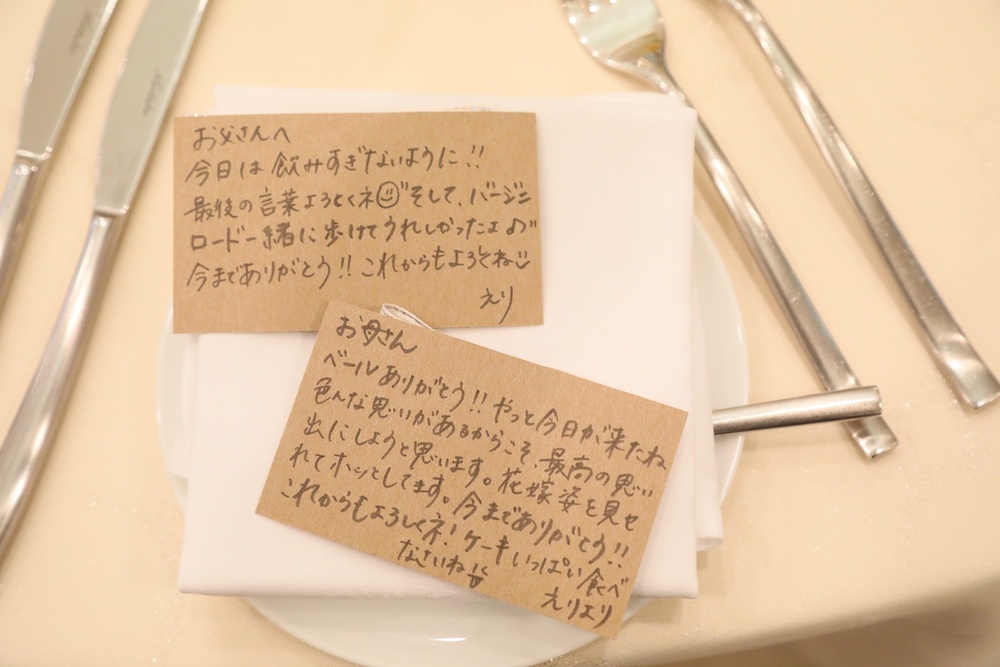 お父さんへ
今日は飲みすぎないように!!
最後の言葉よろしくネ そして、バージン
ロード一緒に歩けてうれしかったよ♪
今までありがとう!! これからもよろしくね
えり
お母さん
ベールありがとう!! やっと今日が来たね
色んな思いがあるからこそ、最高の思い
出にしようと思います。花嫁姿を見せ
れてホッとしてます。今までありがとう!!
これからもよろしくネ! ケーキいっぱい食べ
なさいね
えりより